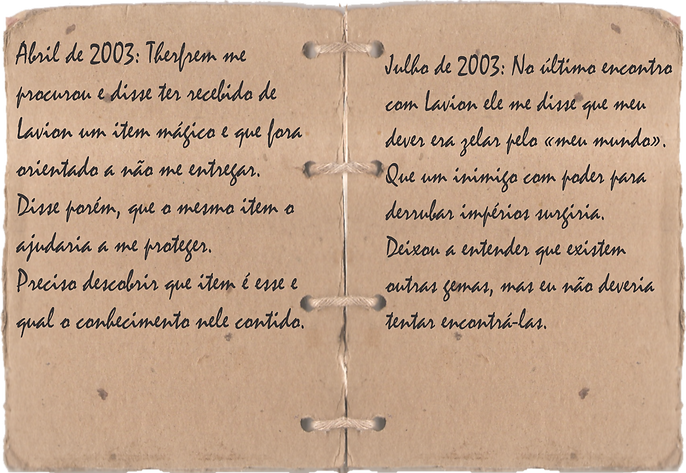 Abril de 2003: Therfrem me
procurou e disse ter recebido de
Lavion um item mágico e que fora
orientado a não me entregar.
Disse porém, que o mesmo item o
ajudaria a me proteger.
Preciso descobrir que item é esse e
qual o conhecimento nele contido.
Julho de 2003: No último encontro
com Lavion ele me disse que meu
dever era zelar pelo «meu mundo».
Que um inimigo com poder para
derrubar impérios surgiria.
Deixou a entender que existem
outras gemas, mas eu não deveria
tentar encontrá-las.